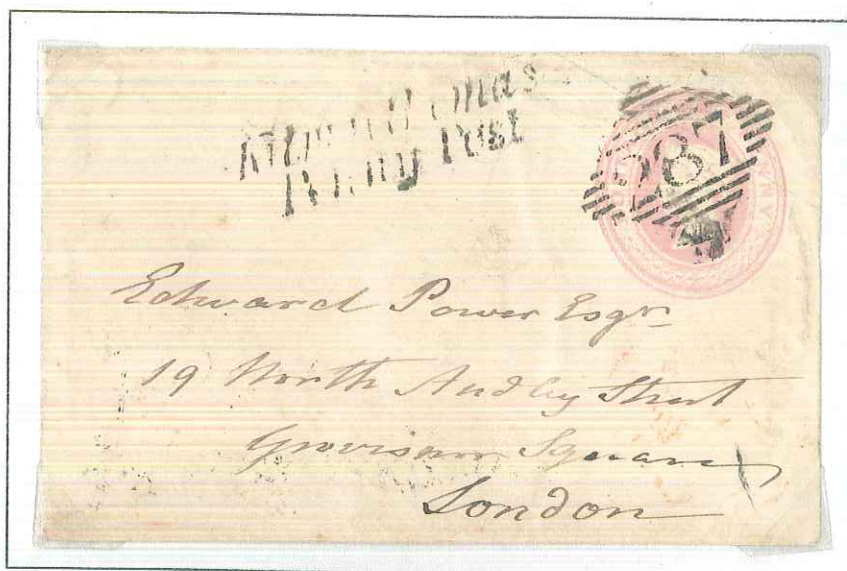 Penny Post
287
Edward Power Esqr
19 North Audley Street
Grosvenor Square
London